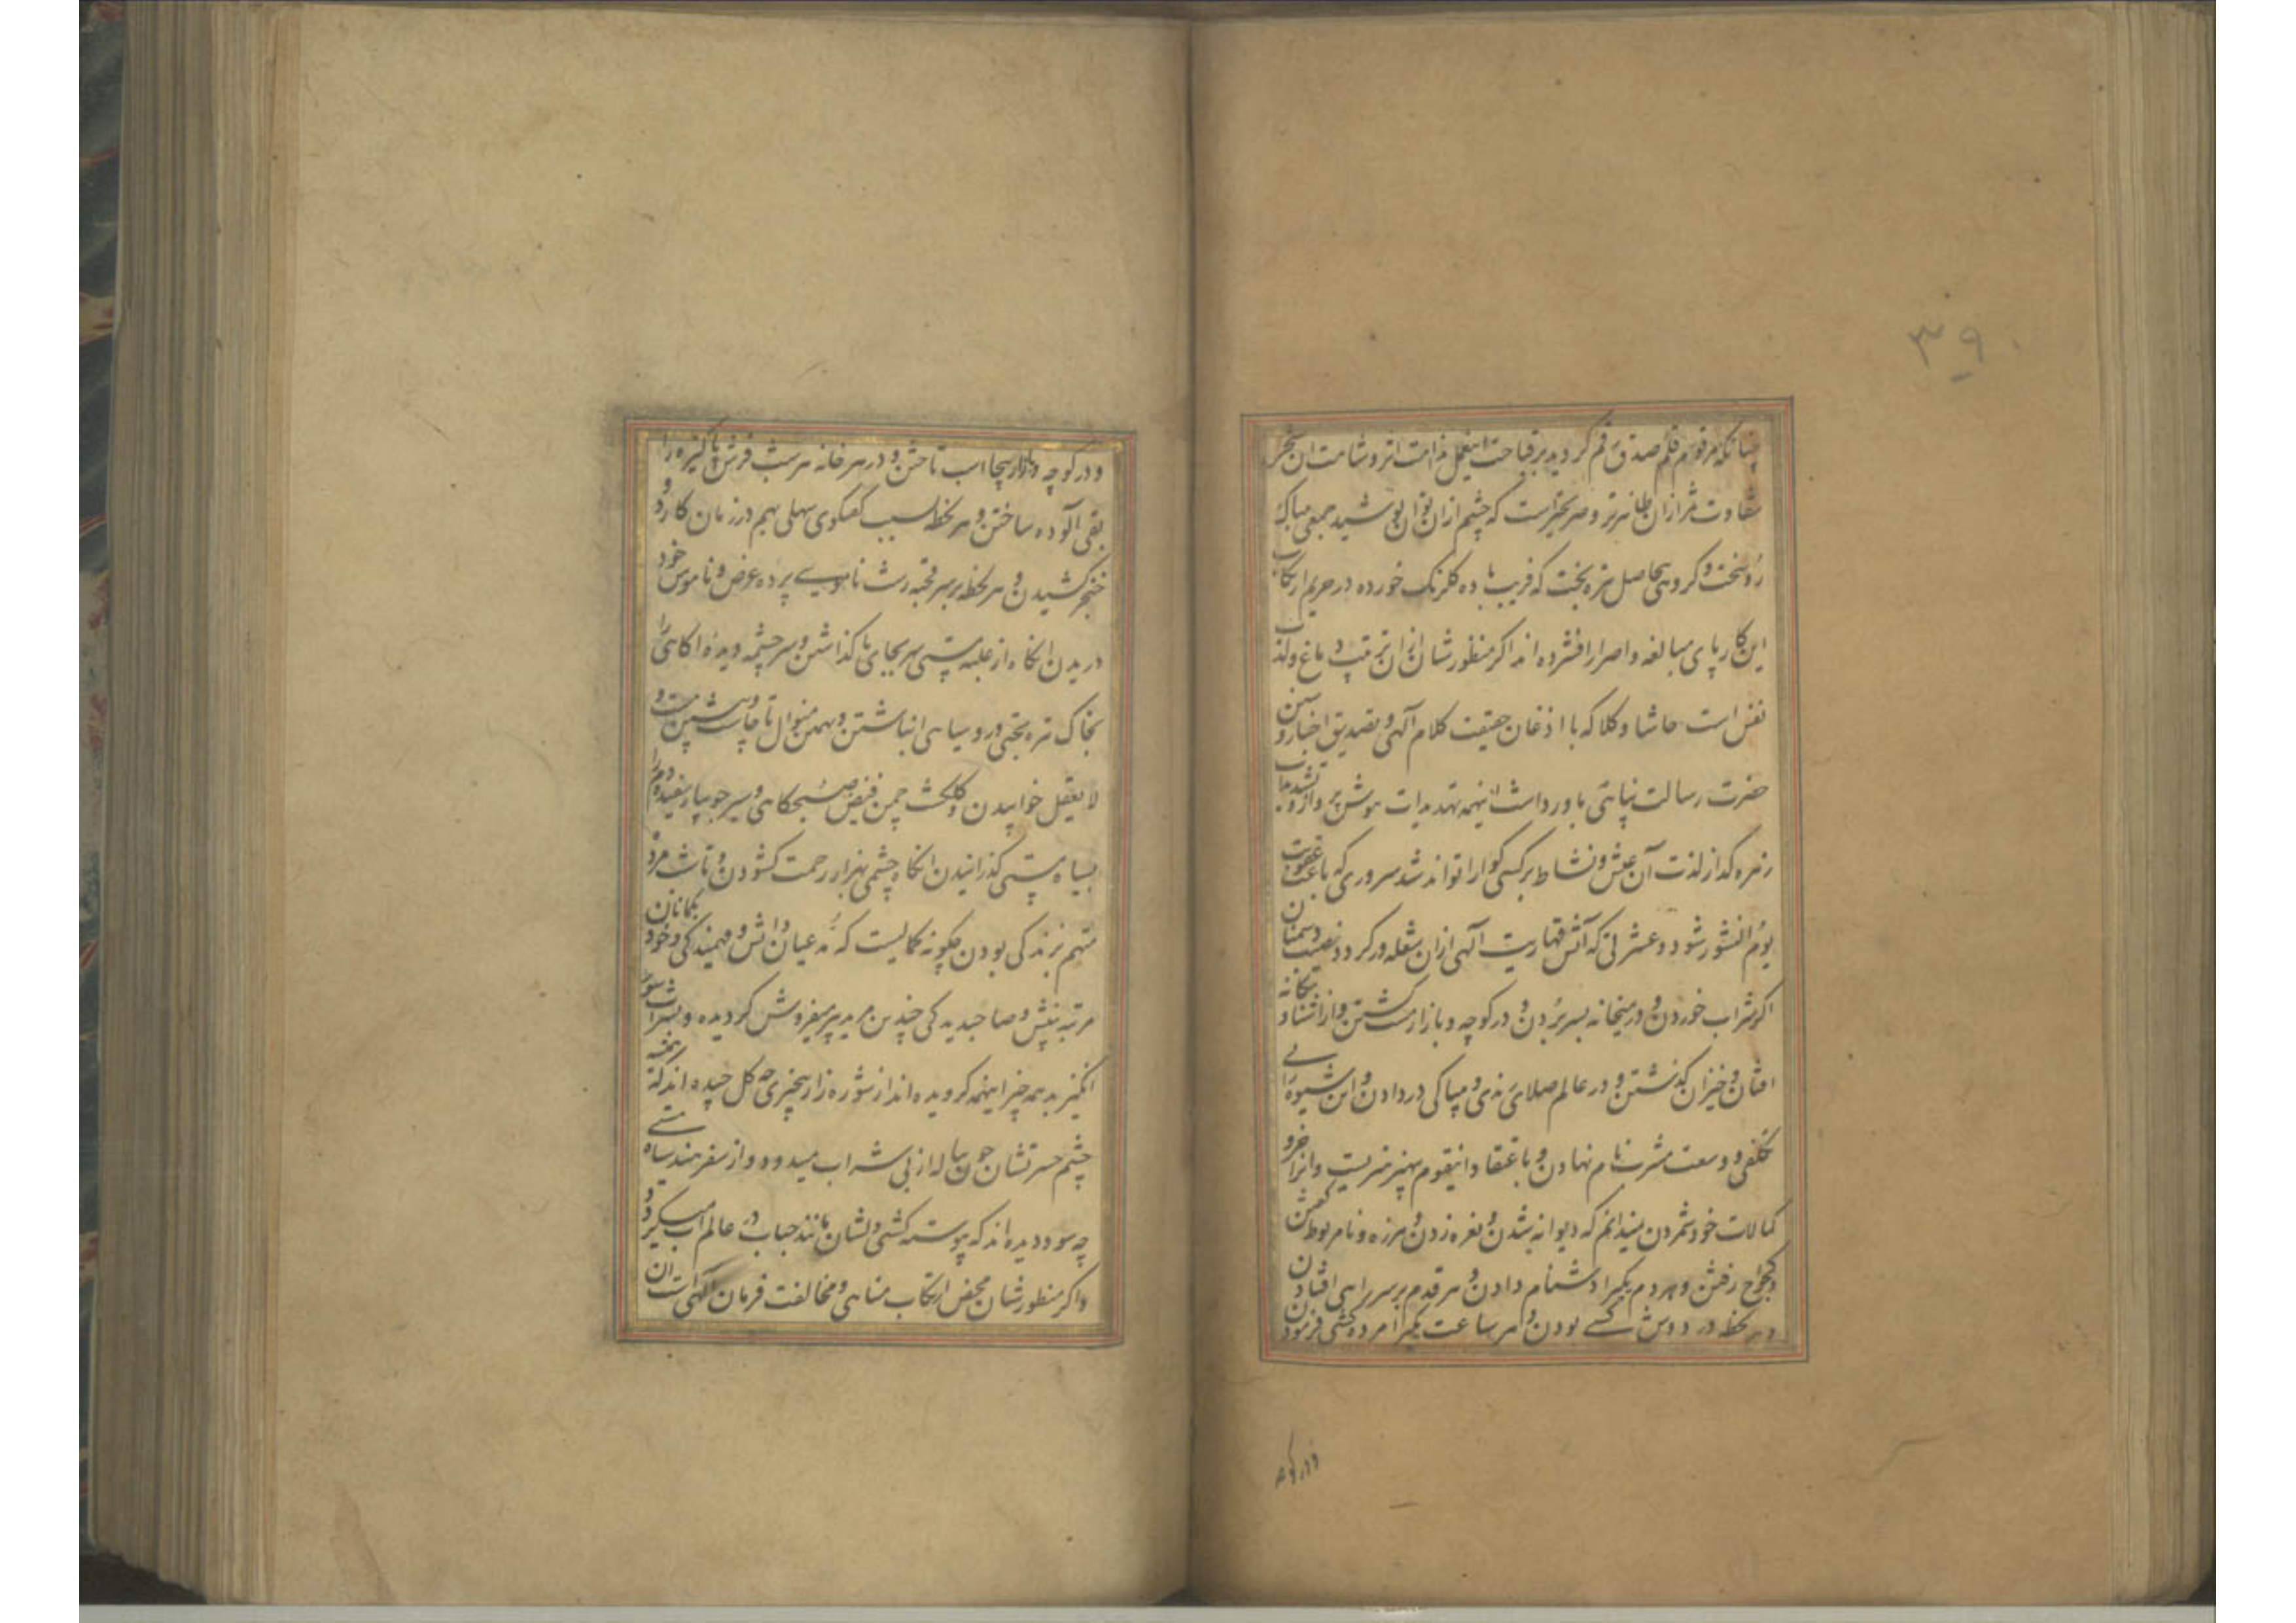 ۳۹
چنانکه مرقوم قلم صدق رقم کردید بر قباحت اینعمل ندامت اثر و شامت ان شجر
شقاوت ثمر ازان ظاهرتر و صریحتراست که چشم ازان توان پوشید جمعی مبارک
و کروهی بیحاصل تیره بخت که فریب باده کلرنک خورده در حریم ارتکاب
این کار پای مبالغه و اصرار افشرده اند اکر منظورشان ازان دماغ ولذت
نفس است حاشا و کلا که با اذعان حقیقت کلام آلهی و تصدیق اخبار
حضرت رسالت پناهی باور داشت اینهمه تهدیدات هوش پرداز و تشدیدات
زهره کداز لذت آن عیش و نشاط بر کسی کوارا تواند شد سروری که باعث عقوبت
یوم النشور شود و عشرتی که آتش قهاریت آلهی ازان شعله ور کردد نصیب دشمنان
اکر شراب خوردن و در میخانه بسر بردن و در کوچه و بازار مست کشتن و از آشنا و بیکانه
افتان و خیزان کذشتن و در عالم صلای رندی و بیباکی در دادن و این شیوه را بی
تکلفی و وسعت مشرب نام نهادن و باعتقاد اینقوم بهتر هنریست و انرا جزو
کمالات خود شمردن میدانم که دیوانه شدن و نعره زدن و هرزه و نامربوط کفتن
و کجواج رفتن و هر دم یکیرا دشنام دادن و هر قدم بر سر راهی افتادن
و هر لحظه در دوش کسی بودن و هر ساعت یکیرا مرده کشی فرمودن
و در کوچه
و در کوچه و بازار بیجا اسب تاختن و در هر خانه هر شب فرش پاکیزه را
بقی آلوده ساختن و هر لحظه بسبب کفتکوی سهلی بهم در زمان کارد و
خنجر کشیدن و هر لحظه بر سر قحبه پرده عرض و ناموس خود
دریدن انکاه از غلبه مستی هر بجای پا کذاشتن و سرچشمه دیده اکاهی را
بخاک تیره بختی و رو سیاهی انباشتن و بهمین منوال تا چاشت مست و
لا یعقل خوابیدن و کلکشت چمن فیض صبحکاهی و سیر جویبار سفیده دم را
بسیاه مستی کذرانیدن انکاه چشمی بهزار زحمت کشودن و تا شب مرده
متهم بزندکی بودن چکونه کمالیست که مدعیان دانش و فهمیدکی و خود بکمانان
مرتبه بینش و صاحبدیدکی چندین مرید پیر میفروش کردیده و بشراب شور
انکیز بدمه چیز اینهمه کرویده اند از شوره زار بیخبری چه کل چیده اند که همیشه
چشم حسرتشان چون پیاله از پی شراب میدود و از سفر هند سیاه مستی
چه سود دیده اند که پیوسته کشتی دلشان مانند حباب در عالم آب میکردد
و اکر منظورشان محض ارتکاب مناهی و مخالفت فرمان آلهی است ان